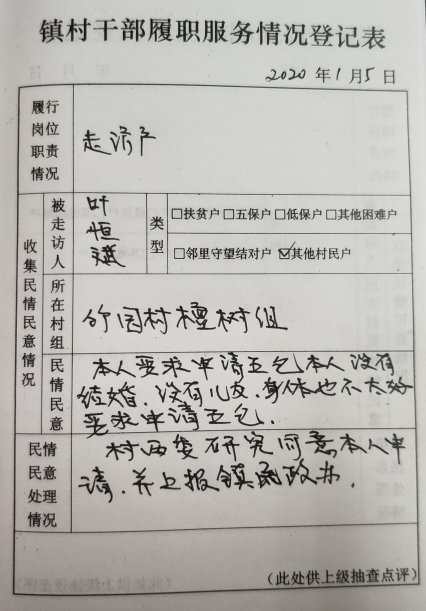 镇村干部履职服务情况登记表
2020 年 1 月 5 日
履行岗位职责情况
走访户
收集民情民意情况
被走访人
叶恒斌
类型
□扶贫户□五保户□低保户□其他困难户
□邻里守望结对户☑其他村民户
所在村组
竹园村檀树组
民情民意
本人要求申请五包,本人没有
结婚,没有儿女,身体也不太好
要求申请五包.
民情民意处理情况
村两委研究同意本人申
请,并上报镇民政办.
(此处供上级抽查点评)